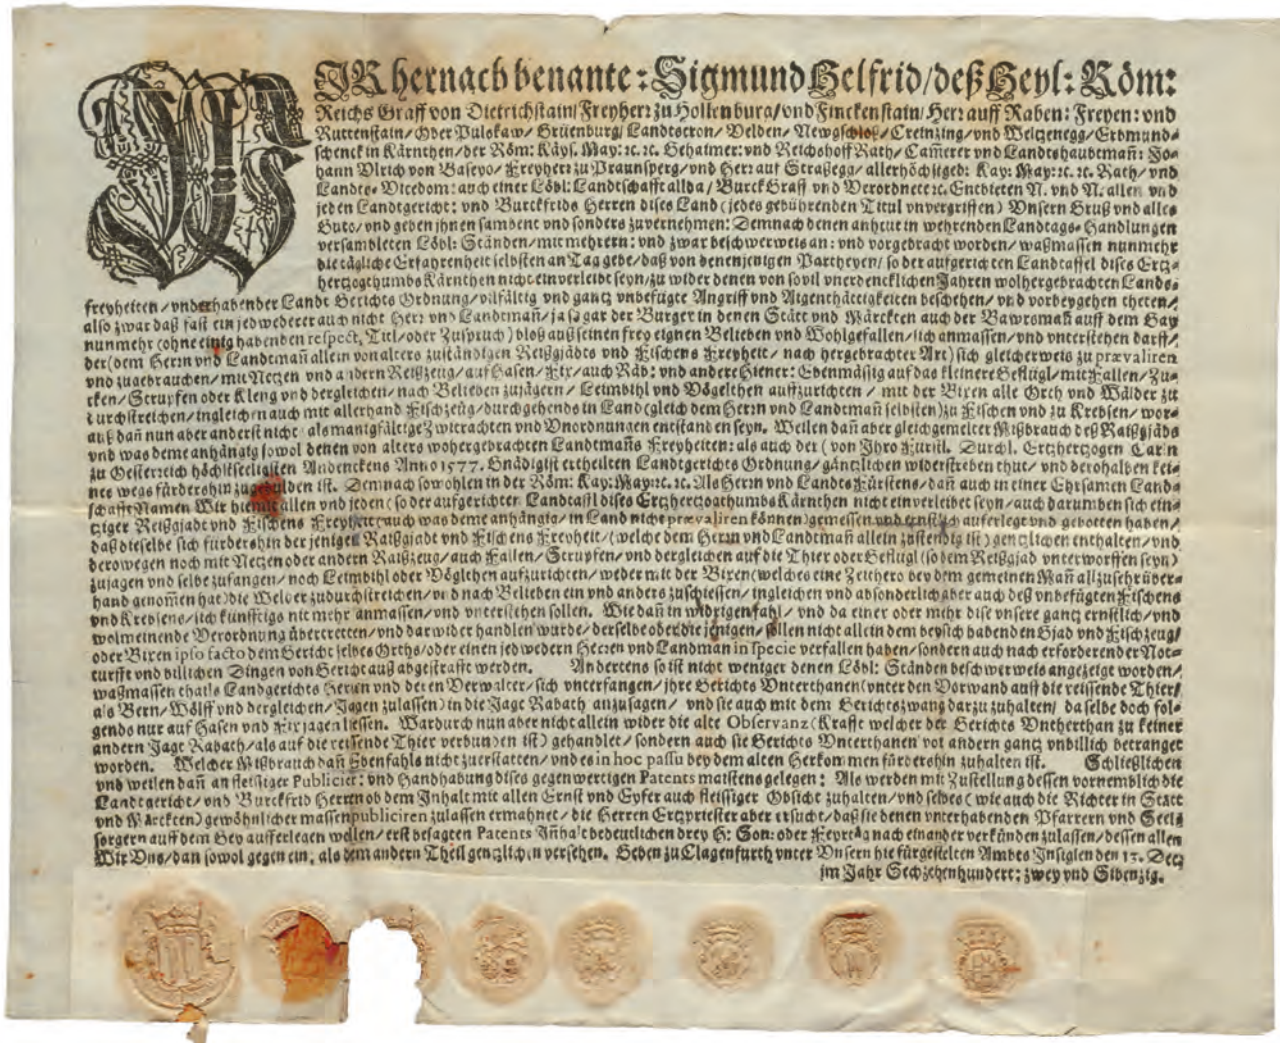 WIR hernach benante: Sigmund Helfrid/deß Heyl: Röm:
Reichs Graff von Dietrichstain/Freyherr zu Hollenburg/vnd Finckenstain/Herr auff Raben: Freyen: vnd
Ruttenstain/Ober Pulskaw/Grüenburg/Landtscron/Velden/Newgschloß/Creinzing/vnd Weltzenegg/Erbmund-
schenck in Kärnthen/der Röm: Käys. May: ꝛc. ꝛc. Gehaimer: vnd Reichshoff Rath/Cam̃erer vnd Landtshaubtmañ: Jo-
hann Vlrich von Basevo/Freyherr zu Praunsperg/vnd Herr auf Straßegg/allerhöchstged: Kay: May: ꝛc. ꝛc. Rath/vnd
Landts-Vicedom: auch einer Löbl: Landtschafft allda/Burck Graff vnd Verordnete ꝛc. Entbieten N. vnd N. allen vnd
jeden Landtgericht: vnd Burckfrids Herren dises Land (jedes gebührenden Titul vnvergriffen) Vnsern Gruß vnd alles
Guts/vnd geben jhnen sambent vnd sonders zuvernehmen: Demnach denen anheut in wehrenden Landtags-Handlungen
versambleten Löbl: Ständen/mit mehrern: vnd zwar beschwerweis an: vnd vorgebracht worden/waßmassen nunmehr
die tägliche Erfahrenheit selbsten an Tag gebe/daß von denenjenigen Partheyen/so der aufgerichten Landtaffel dises Ertz-
hertzogthumbs Kärnthen nicht einverleibt seyn/zu wider denen von sovil vnerdencklichen Jahren wolhergebrachten Lands-
freyheiten/vnd erhabender Landt Gerichts Ordnung/vilfältig vnd gantz vnbefugte Angriff vnd Aigenthättigkeiten beschehen/vnd vorbeygehen theten/
also zwar daß fast ein jedwederer auch nicht Herr vnd Landtmañ/ja so gar der Burger in denen Stätt vnd Märckten auch der Bawrsmañ auff dem Gay
nunmehr (ohne einig habenden respect, Titl/oder Zuspruch) bloß auß seinen frey eignen Belieben vnd Wohlgefallen/sich anmassen/vnd vnterstehen darff/
der (dem Herrn vnd Landtmañ allein von alters zuständigen Reißgjädts vnd Fischens Freyheit/nach hergebrachter Art) sich gleicherweis zu prævaliren
vnd zugebrauchen/mit Netzen vnd andern Reißzeug/auf Hasen/Fix/auch Räb: vnd andere Hiener: Ebenmässig auf das kleinere Geflügl/mit Fallen/Zu-
cken/Strupfen oder Kleng vnd dergleichen/nach Belieben zujägern/Leimbihl vnd Vögelthen auffzurichten/mit der Bixen alle Orth vnd Wälder zu
durchstreichen/ingleichen auch mit allerhand Fischzeüg/durchgehends in Land (gleich dem Herrn vnd Landtmañ selbsten) zu Fischen vnd zu Krebsen/wor-
auß dañ nun aber anderst nicht/als manigfältige Zwitrachten vnd Vnordnungen entstanden seyn. Weilen dañ aber gleichgemelter Mißbrauch deß Raißgjäds
vnd was deme anhängig sowol denen von alters wohergebrachten Landtmañs Freyheiten: als auch der (von Ihro Fürstl. Durchl. Ertzhertzogen Carln
zu Oesterreich höchstseeligisten Andenckens Anno 1577. Gnädigist ertheilten Landtgerichts Ordnung/gäntzlichen widerstreben thut/vnd derohalben kei-
nes wegs fürdershin zugedulden ist. Demnach so wohlen in der Röm: Kay: May: ꝛc. ꝛc. Als Herrn vnd Landts Fürstens/dañ auch in einer Ehrsamen Landt-
schafft Namen Wir hiemit allen vnd jeden (so der aufgerichten Landtaffl dises Ertzhertzogthumbs Kärnthen nicht einverleibet seyn/auch darumben sich ein-
tziger Reißgjadt vnd Fischens Freyheit (auch was deme anhängig/in Land nicht prævaliren können) gemessen vnd ernstlich auferlegt vnd gebotten haben/
daß dieselbe sich fürdershin der jenigen Raißgjadt vnd Fischens Freyheit/(welche dem Herrn vnd Landtmañ allein zuständig ist) gentzlichen enthalten/vnd
derowegen noch mit Netzen oder andern Raißzeug/auch Fallen/Strupfen/vnd dergleichen auf die Thier oder Geflügl (so dem Reißgjad vnterworffen seyn)
zujagen vnd selbe zufangen/noch Leimbihl oder Vöglthen aufzurichten/weder mit der Bixen (welches eine Zeithero bey dem gemeinen Mañ allzusehr über-
hand genom̃en hat) die Wälder zudurchstreichen/vnd nach Belieben ein vnd anders zuschiessen/ingleichen vnd absonderlich aber auch deß vnbefügten Fischens
vnd Krebsens/sich künfftig nit mehr anmassen/vnd vnterstehen sollen. Wie dañ in widrigenfahl/vnd da einer oder mehr dise vnsere gantz ernstlich/vnd
wolmeinende Verordnung übertretten/vnd darwider handlen wurde/derselbe oder die jenigen/sollen nicht allein dem beysich habenden Gjad vnd Fischzeug/
oder Bixen ipso facto dem Gericht selbes Orths/oder einen jedwedern Herren vnd Landtman in specie verfallen haben/sondern auch nach erforderender Not-
turfft vnd billichen Dingen von Gericht auß abgestrafft werden. Andertens so ist nicht weniger denen Löbl: Ständen beschwerweis angezeigt worden/
waßmassen thails Landgerichts Herrn vnd deren Verwalter/sich vnterfangen/jhre Gerichts Vnterthanen (vnter den Vorwand auff die reissende Thier/
als Bern/Wölff vnd dergleichen/Jagen zulassen) in die Jage Rabath anzusagen/vnd sie auch mit dem Gerichtszwang darzu zuhalten/da selbe doch fol-
gends nur auf Hasen vnd Fix jagen liessen. Wardurch nun aber nicht allein wider die alte Observanz (Krafft welcher der Gerichts Vntherthan zu keiner
andern Jage Rabath/als auf die reissende Thier verbunden ist) gehandlet/sondern auch sie Gerichts Vnterthanen vor andern gantz vnbillich betranget
worden. Welcher Mißbrauch dañ Ebenfahls nicht zuerstatten/vnd es in hoc passu bey dem alten Herkommen fürdershin zuhalten ist. Schließlichen
vnd weilen dañ an fleissiger Publicier: vnd Handhabung dises gegenwertigen Patents maistens gelegen: Als werden mit Zustellung dessen vornemblich die
Landtgericht/vnd Burckfrid Herren ob dem Inhalt mit allen Ernst vnd Eyfer auch fleissiger Obsicht zuhalten/vnd selbes (wie auch die Richter in Stätt
vnd Märckten) gewöhnlicher massen publiciren zulassen ermahnet/die Herren Ertzpriester aber ersucht/daß sie denen vnterhabenden Pfarrern vnd Seel-
sorgern auff dem Gey aufferlegen wollen/erst besagten Patents Inhalt bedeutlichen drey H: Son: oder Feyrtäg nach einander verkünden zulassen/dessen allen
Wir Vns/dan sowol gegen ein, als dem andern Theil gentzlichen versehen. Geben zu Clagenfurth vnter Vnsern hie fürgestelten Ambts Insiglen den 13. Dec:
im Jahr Sechzehenhundert: zwey vnd Sibenzig.